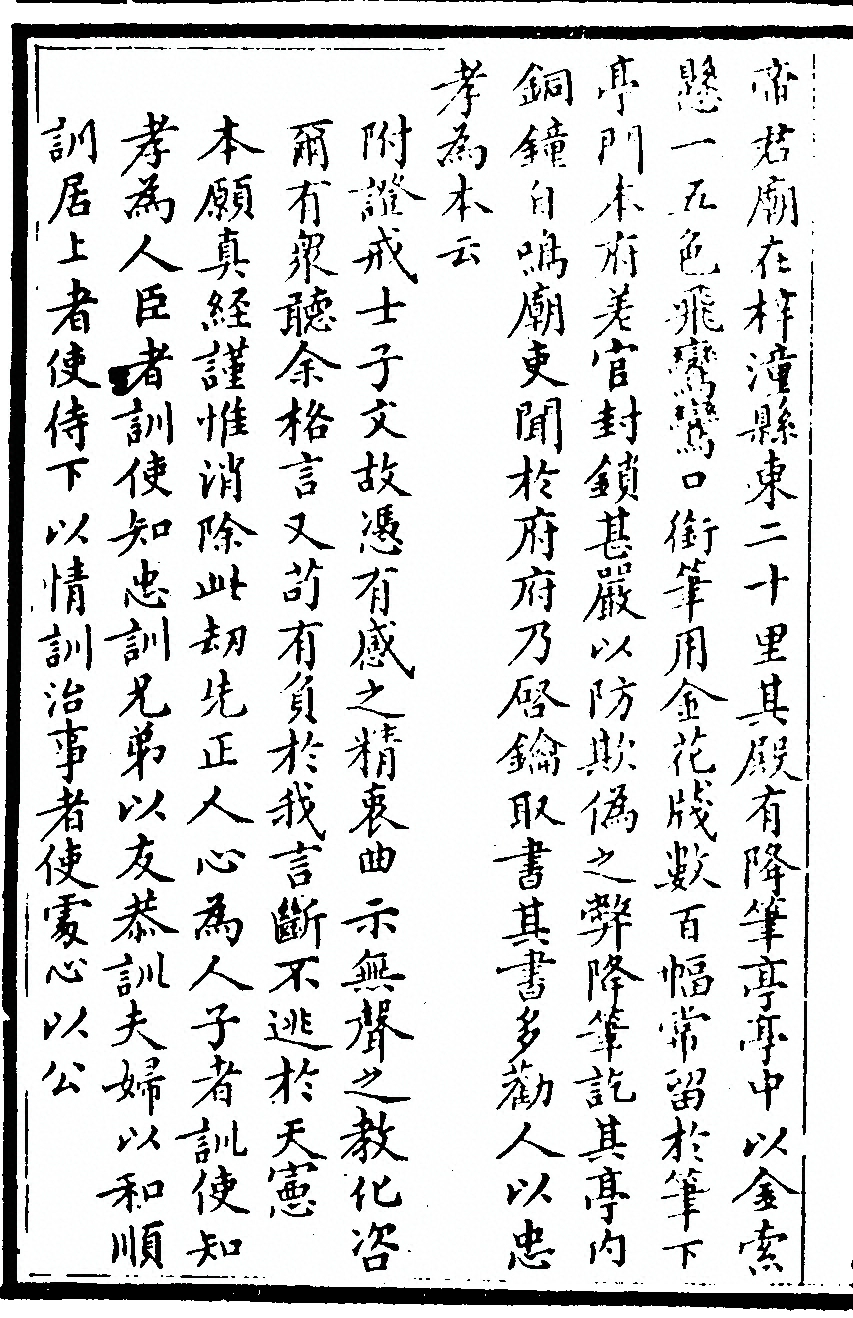 帝君廟在梓潼縣東二十里其殿有降筆亭亭中以金索
懸一五色飛鸞鸞口銜筆用金花牋數百幅常留於筆下
亭門本府差官封鎖甚嚴以防欺偽之弊降筆訖其亭內
銅鐘自鳴廟吏聞於府府乃啓鑰取書其書多勸人以忠
孝為本云
附證戒士子文故憑有感之精衷曲示無聲之教化咨
爾有眾聽余格言又苟有負於我言斷不逃於天憲
本願真經謹惟消除此刼先正人心為人子者訓使知
孝為人臣者訓使知忠訓兄弟以友恭訓夫婦以和順
訓居上者使待下以情訓治事者使處心以公